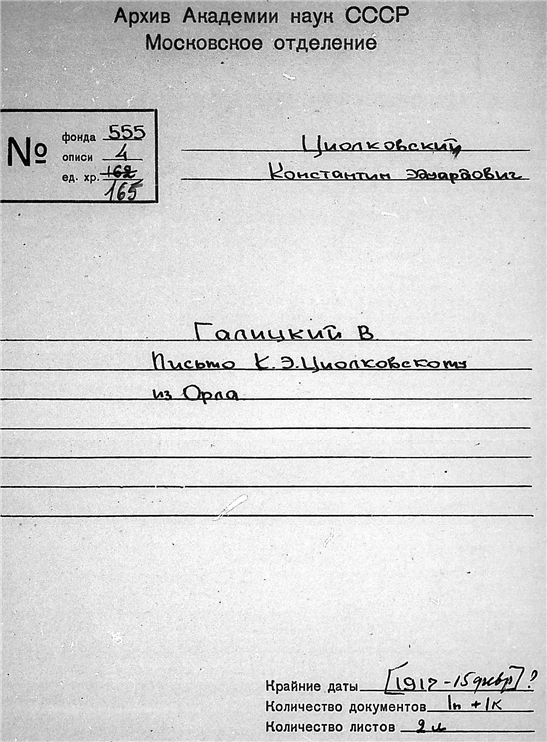 Архив Академии наук СССР
Московское отделение
№
фонда 555
описи 4
ед. хр. 162
165
Циолковский
Константин Эдуардович
Галицкий В.
Письмо К.Э.Циолковскому
из Орла
Крайние даты [1917 - 15 февр]?
Количество документов 1п + 1к
Количество листов 2л